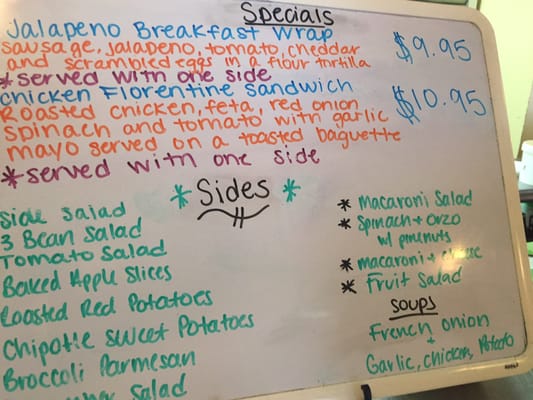 Specials
Jalapeno Breakfast Wrap
sausage, jalapeno, tomato, cheddar
and scrambled eggs in a flour tortilla
$9.95
*served with one side
Chicken Florentine Sandwich
Roasted chicken, feta, red onion
$10.95
spinach and tomato with garlic
mayo served on a toasted baguette
*served with one side
* Sides *
Side Salad
3 Bean Salad
Tomato Salad
Baked Apple Slices
Roasted Red Potatoes
Chipotle Sweet Potatoes
Broccoli Parmesan
Salad
* Macaroni Salad
* Spinach + Orzo
w/ pinenuts
* macaroni + cheese
* Fruit Salad
Soups
French Onion
+
Garlic, Chicken, Potato